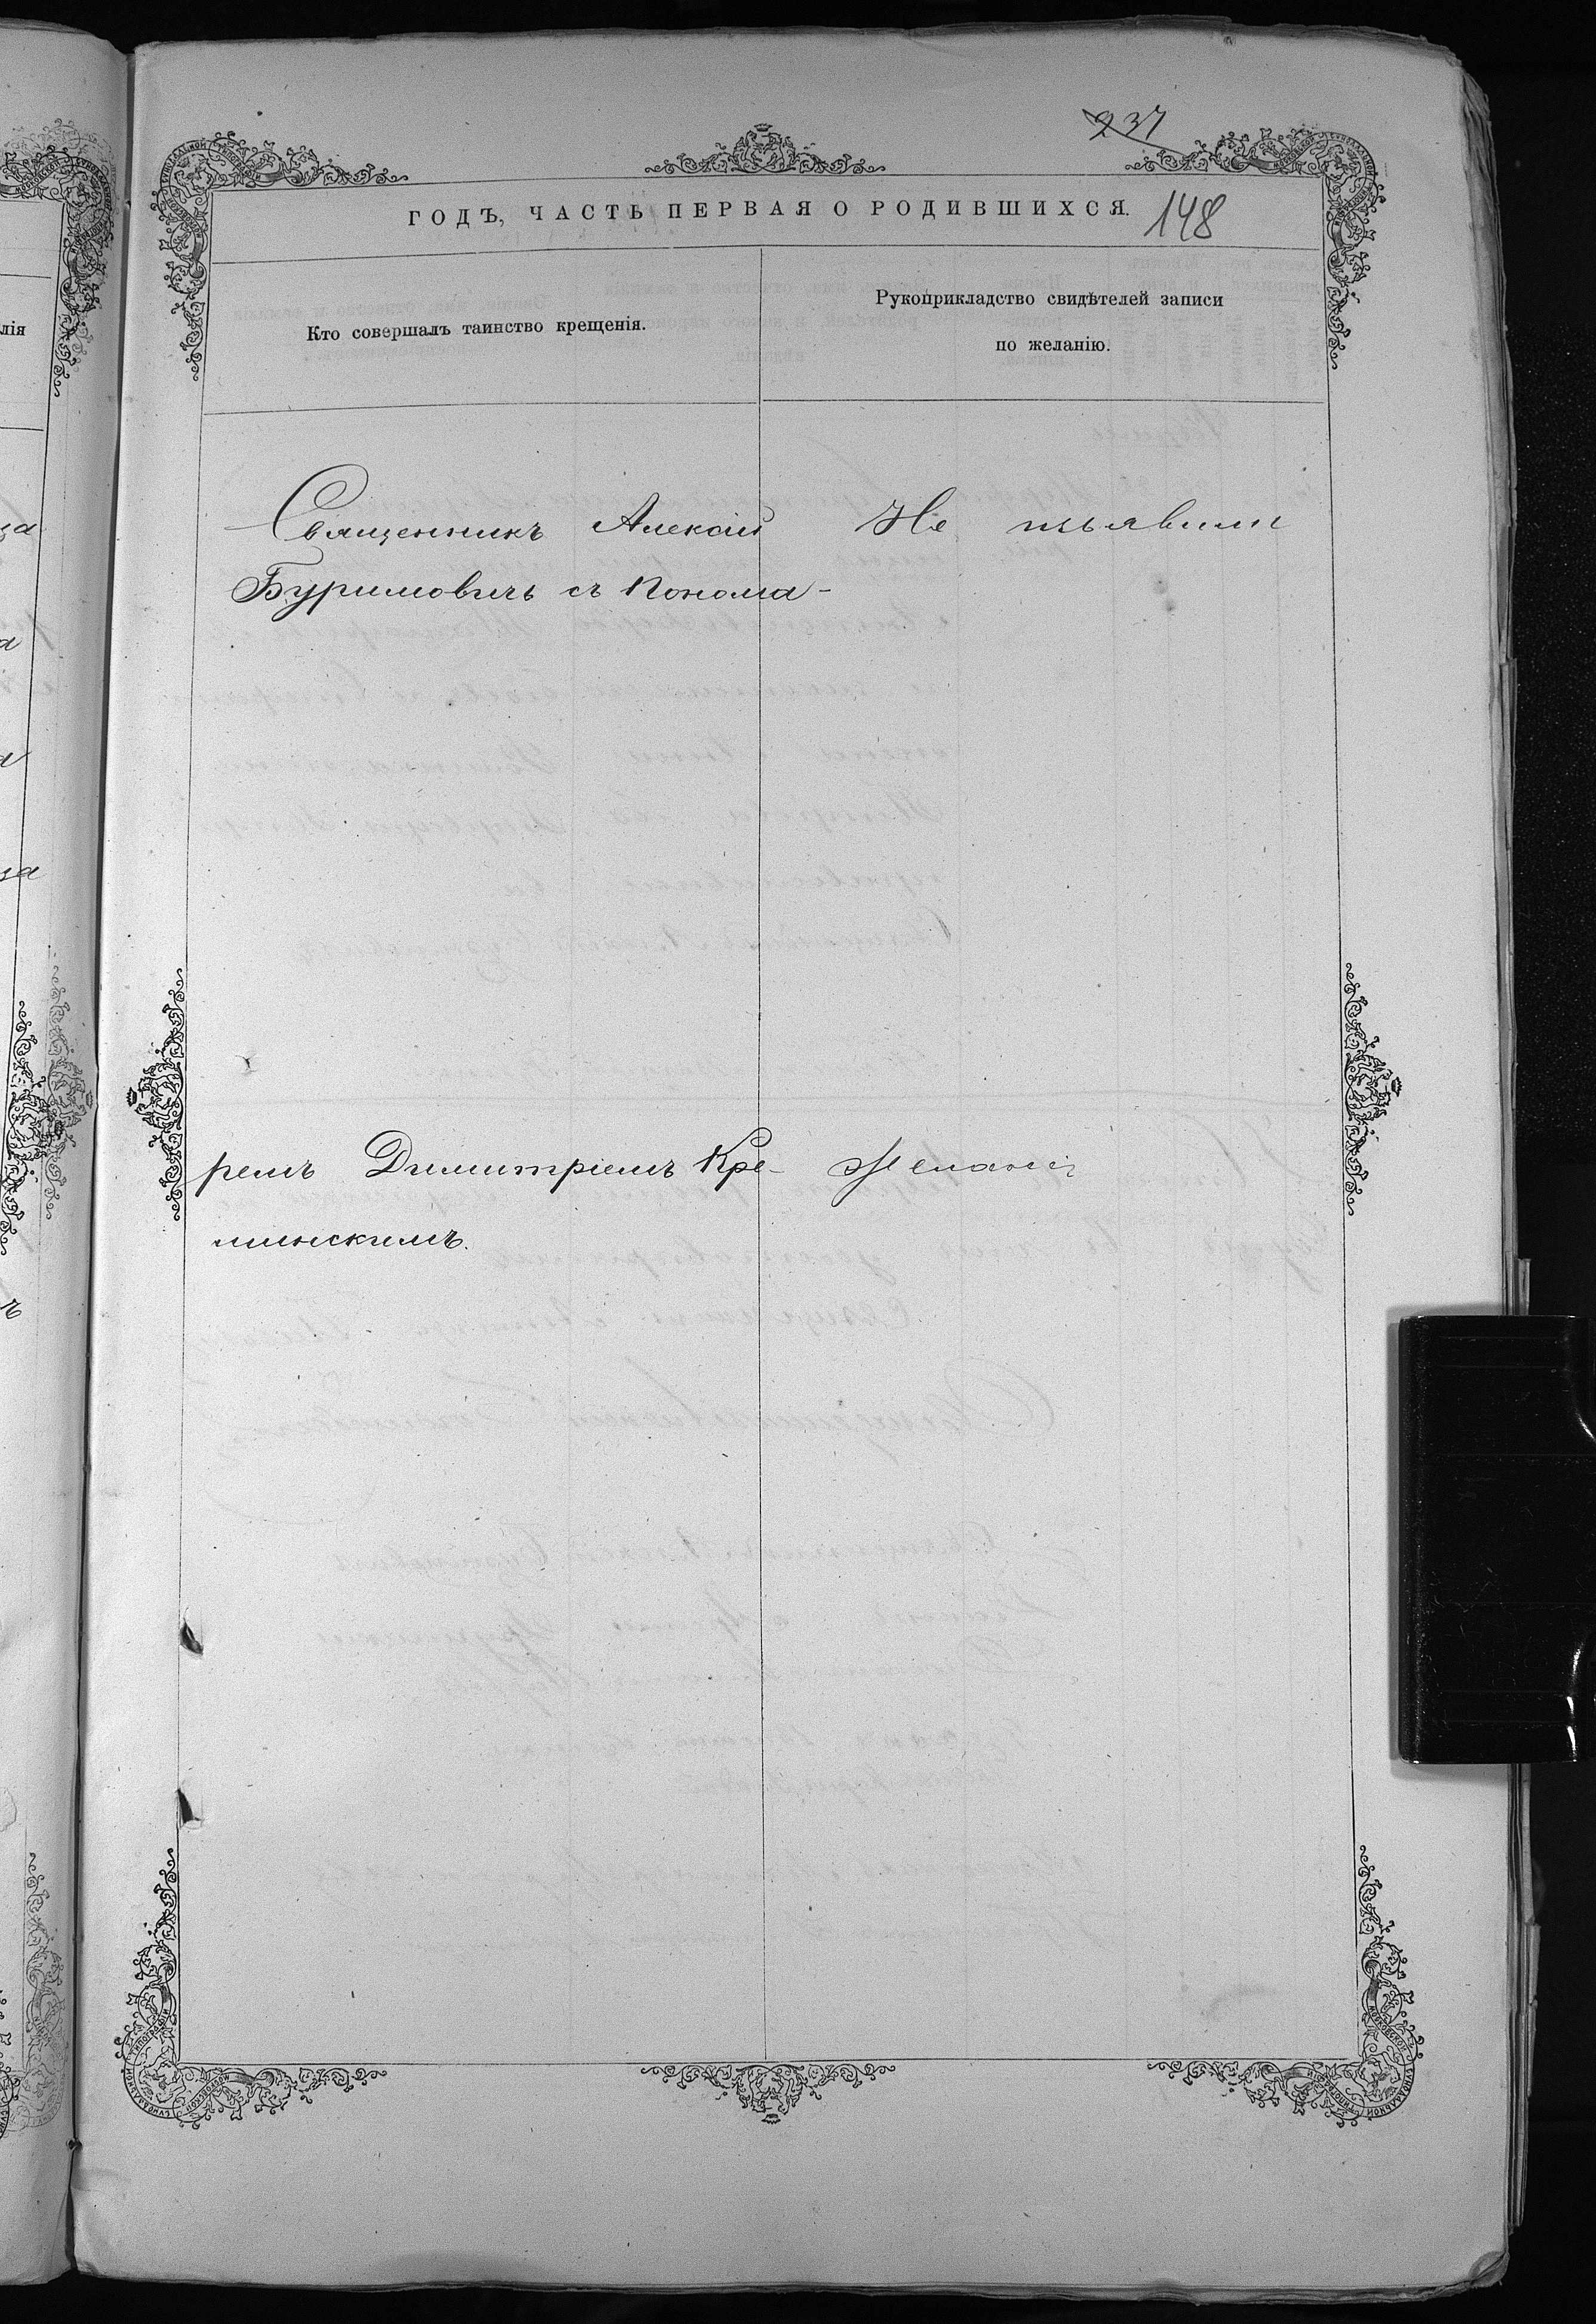 237
ГОДЪ, ЧАСТЬ ПЕРВАЯ О РОДИВШИХСЯ. 148
Кто совершалъ таинство крещенія.
Рукоприкладство свидѣтелей записи
по желанію.
Священникъ Алексій
Буримовичъ съ понома-
ремъ Димитріемъ Кре-
минскимъ.
Не изъявили
желанія
лія